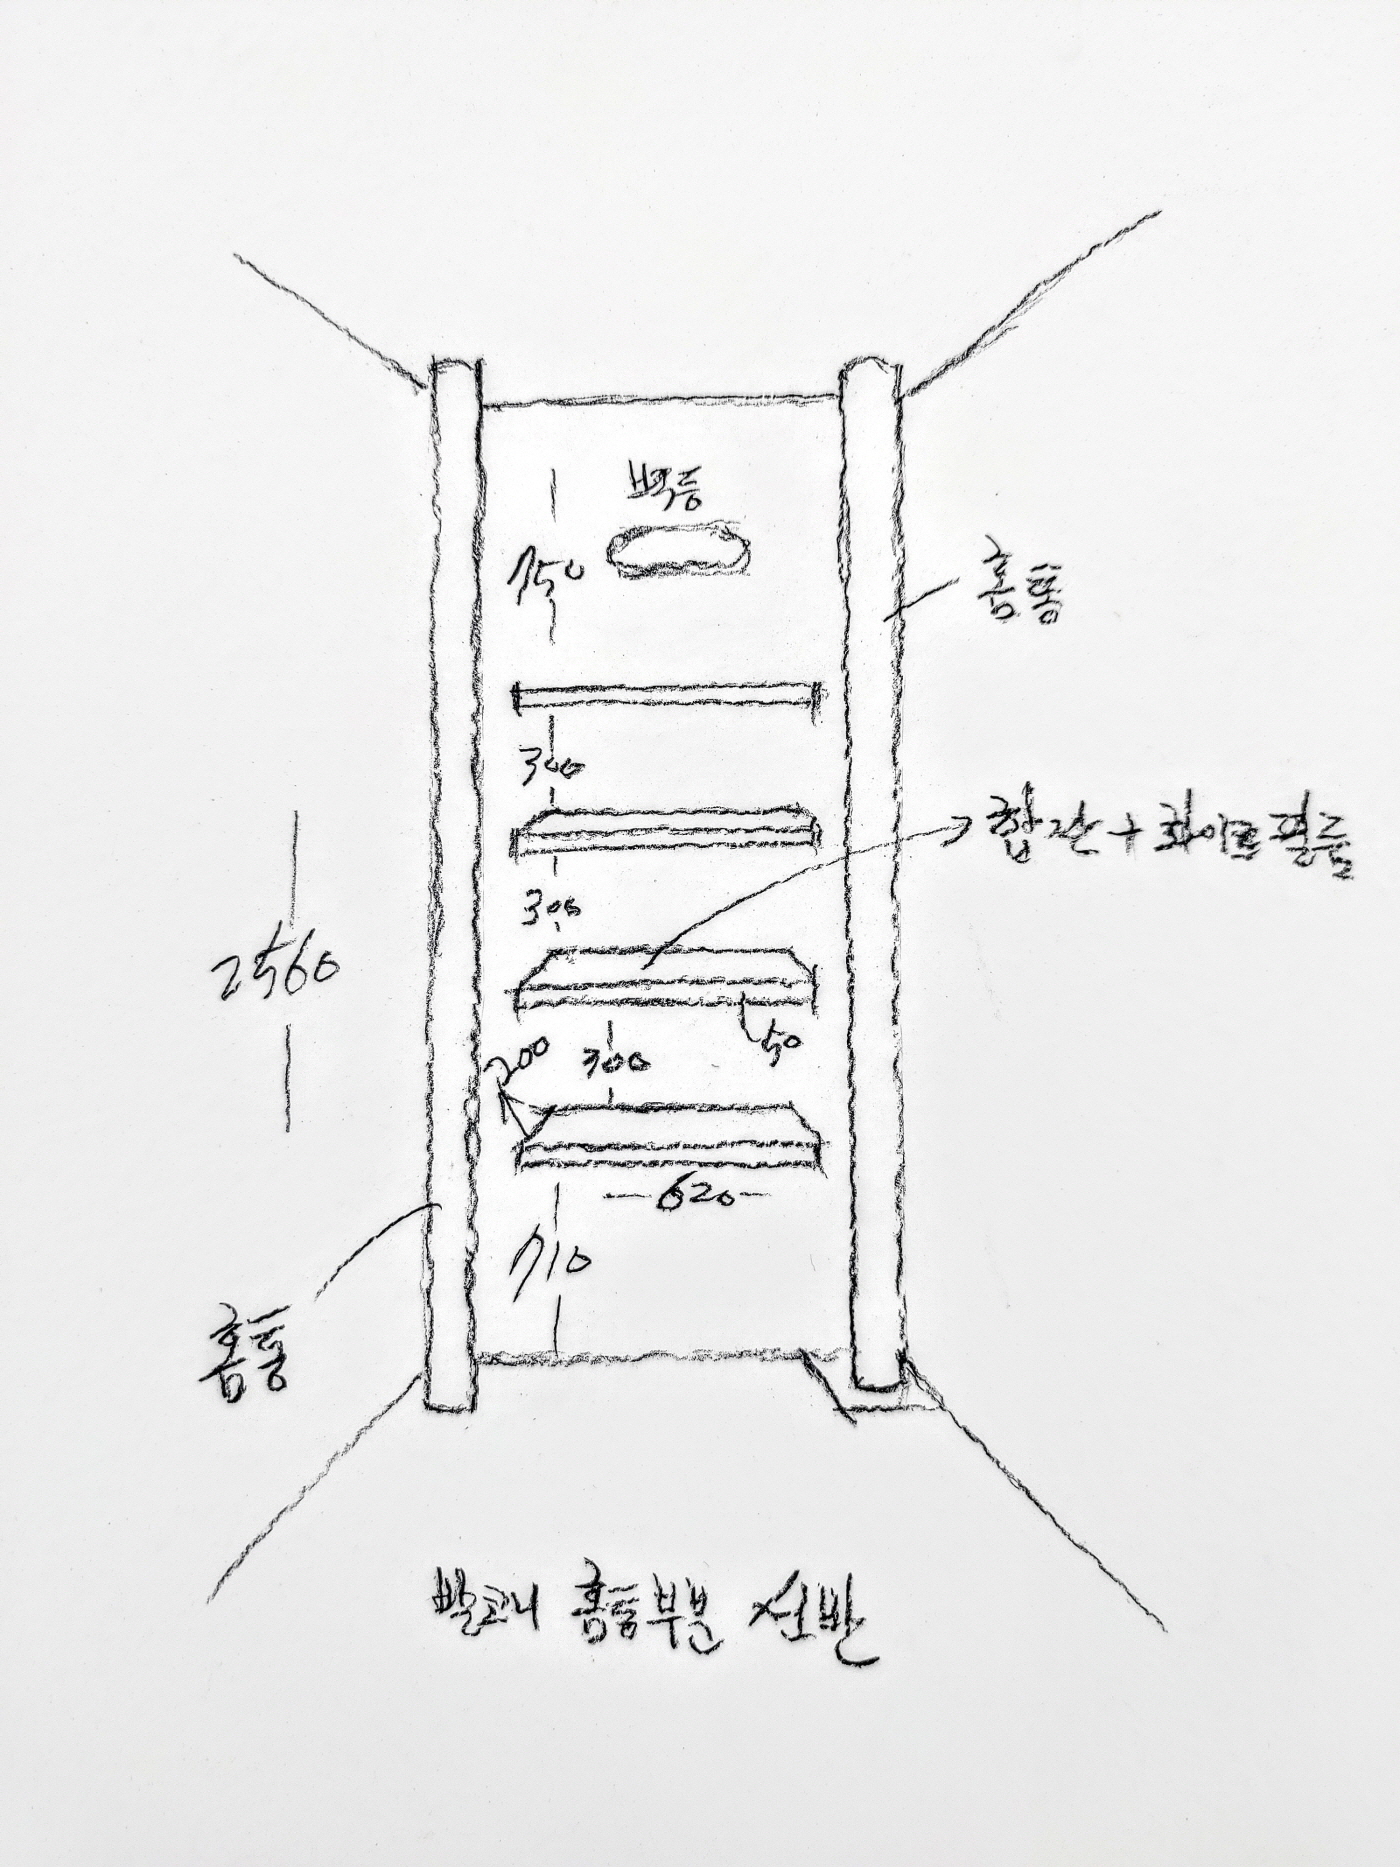 벽등
750
홈통
300
합판+화이트필름
300
2560
50
200
300
620
710
홈통
발코니 홈통부분 선반